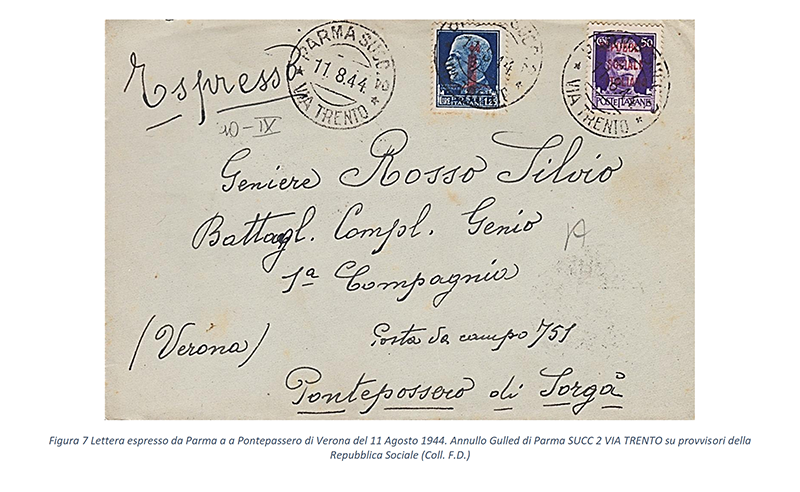 Espresso
PARMA SUCC. 2
11.8.44
VIA TRENTO
POSTE ITALIANE 1,25
50
SOCIALE
POSTE ITALIANE
VIA TRENTO
40-IX
Geniere Rosso Silvio
Battagl. Compl. Genio
A
1ª Compagnia
(Verona)
Posta da campo 751
Pontepossero di Sorgà
Figura 7 Lettera espresso da Parma a a Pontepassero di Verona del 11 Agosto 1944. Annullo Gulled di Parma SUCC 2 VIA TRENTO su provvisori della
Repubblica Sociale (Coll. F.D.)